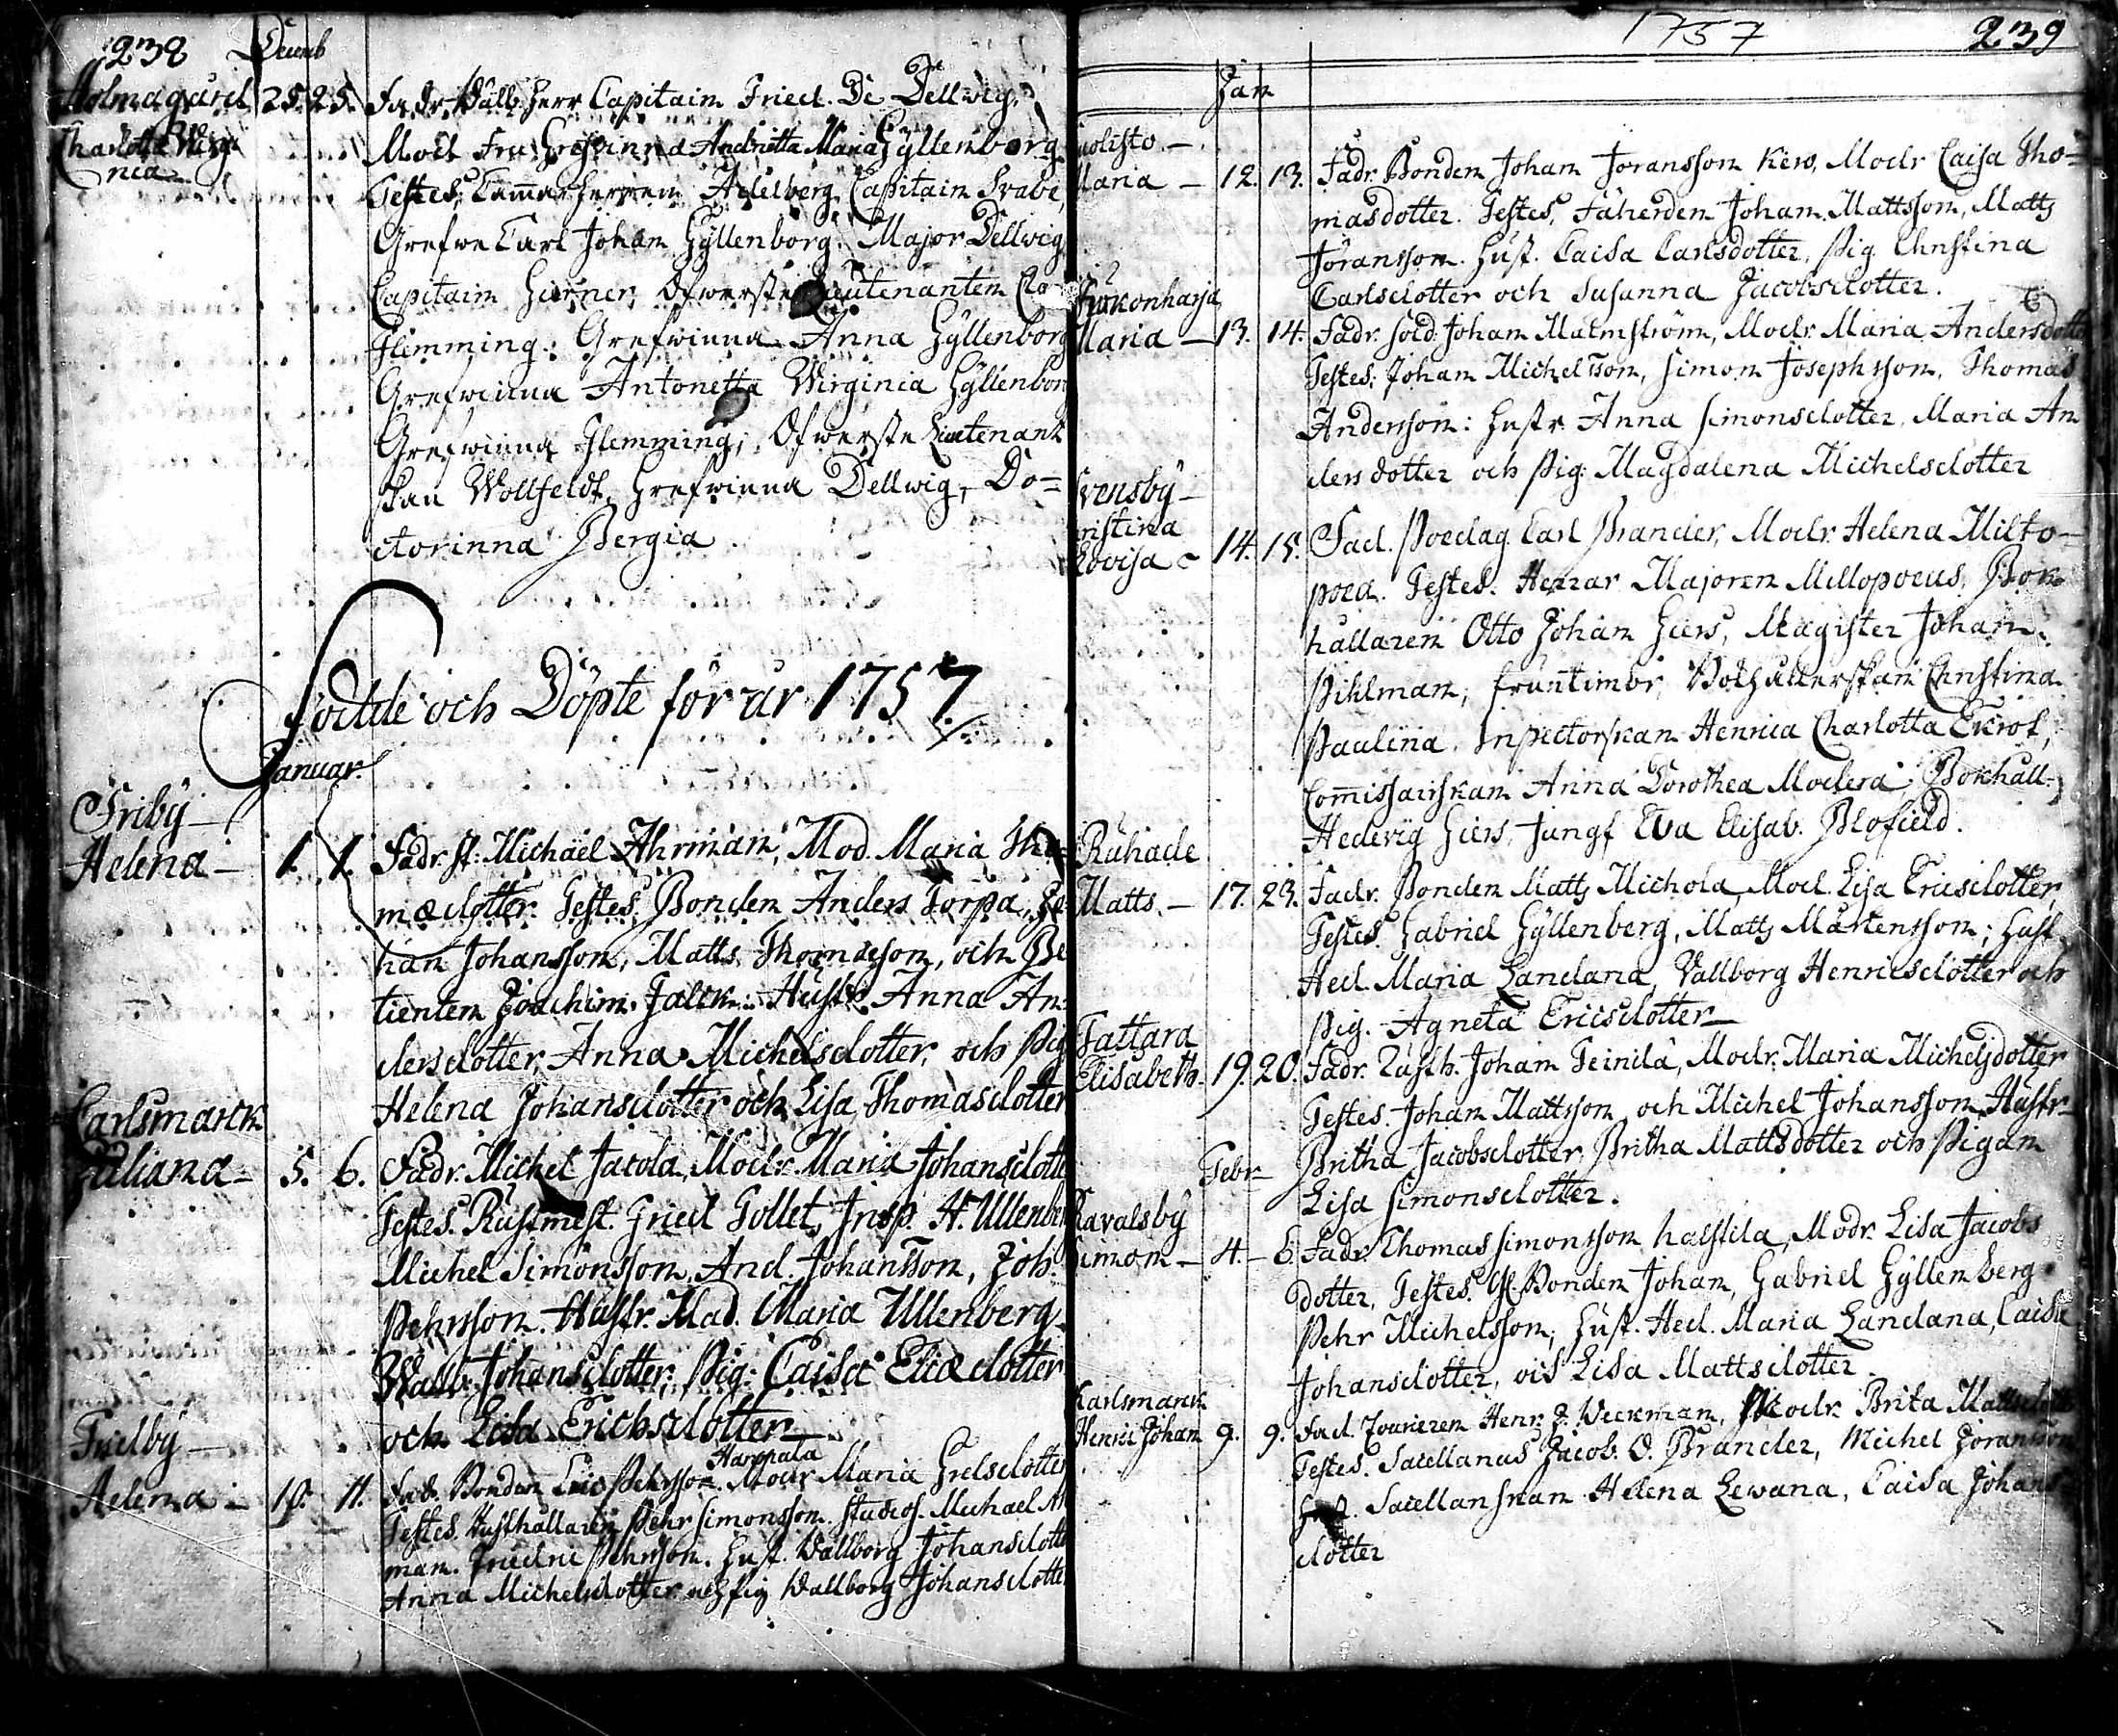 238 Decemb
Holmagård 25. 25. Fadr. Välb. Herr Capitain Fried. De Dellwig,
Charlotta Virgi Mod Fru Grefvinna Andrietta Maria Gyllenborg
nia Testes, Cam̄arherren Adelberg, Capitain Svabe,
Grefwe Carl Johan Gyllenborg. Major Dellwig
Capitain Giärner, Öfwerste Lieutenanten
Flemming: Grefwinna Anna Gyllenborg
Grefwinna Antonetta Wirginia Gyllenborg
Grefwinna Flemming; Ofwerste Lieutenant
skan Wollfeldt, Grefwinna Dellwig, Do=
ctorinna Bergia.
Födde och Döpte för år 1757
Januar.
Friby
Helena 1. 1. Fadr. st: Michaël Ahrman, Mod. Maria Tho
mædotter. Testes, Bonden Anders Torpa, Jo
han Johansson, Matts Thomæson, och Be
tienten Joachim Falck: Hustr. Anna An=
dersdotter, Anna Michelsdotter, och Pig
Helena Johansdotter och Lisa Thomasdotter
Carlsmarck
Juliana 5. 6. Fadr. Michel Jacola, Modr. Maria Johansdotte
Testes. Rustmest. Fried Tollet, Insp. H. Ullenber
Michel Simonsson, And. Johansson, Joh.
Pehrsson. Hustr. Mad. Maria Ullenberg
Wallb. Johansdotter; Pig: Caisa Eliædotter
och Lisa Erichsdotter
Frelby Harppala
Helena 10. 11. Fadr. Bonden Eric Pehrsson. Modr Maria Grelsdotter
Testes. Rusthållaren Pehr Simonsson. Studios. Michael
man. Friedric Pehrsson. Hust. Wallborg Johansdotte
Anna Michelsdotter och pig Wallborg Johansdotte
1757 239
Jan
uolisto
Maria 12. 13. Fadr. Bonden Johan Joransson Kero, Modr Caisa Tho=
masdotter. Testes, Fäherden Johan Mattsson, Matts
Joransson. Hust. Caisa Carlsdotter, Pig. Christina
Carlsdotter och Susanna Jacobsdotter.
Purkonharja
Maria 13. 14. Fadr. sold. Johan Malmström, Modr. Maria Andersdotte
Testes: Johan Michelsson, Simon Josephsson, Thomas
Andersson: Hustr Anna Simonsdotter, Maria An
dersdotter och Pig: Magdalena Michelsdotter
Svensby
ristina
Lovisa 14. 15. Fad. Pædag. Carl Brander, Modr. Helena Milto=
poea. Testes. Herrar Majoren Millopoeus, Bok
hållaren Otto Johan Giers, Magister Johan
Pihlman, fruntimbr Bokhållerskan Christina
Paulina. Inpectorskan Henrica Charlotta Ekrot,
Com̄issairskan Anna Dorothea Modera; Bokhåll.
Hedevig Giers, Jungf Eva Elisab. Blofield.
Råhade
Matts. 17. 23. Fadr. Bonden Matts Michola, Mod. Lisa Ericsdotter,
Testes. Gabriel Gyllenberg, Matts Mårtensson; Hust
Hed. Maria Landana, Vallborg Henricsdotter och
Pig. Agneta Ericsdotter
Tattara
Elisabeth. 19. 20. Fadr. Rusth. Johan Teinilä, Modr. Maria Michelsdotter
Testes. Johan Mattsson och Michel Johansson, Hustr
Britha Jacobsdotter, Britha Mattsdotter och Pigan
Febr Lisa Simonsdotter.
Kavalsby
Simon 4. 6. Fadr. Thomas Simonsson halstila, Modr. Lisa Jacobs
dotter, Testes. Bonden Johan, Gabriel Gyllenberg
Pehr Michelsson; Hust. Hed. Maria Landana, Caisa
Johansdotter, och Lisa Mattsdotter.
Karlsmarck
Henric Johan 9. 9. Fad. Henr. J. Weckman, Modr. Brita Mattsdotte
Testes. Sacellanus Jacob. O. Brander, Michel Joransson
Hust. Sacellanskan Helena Lewana, Caisa Johans
dotter